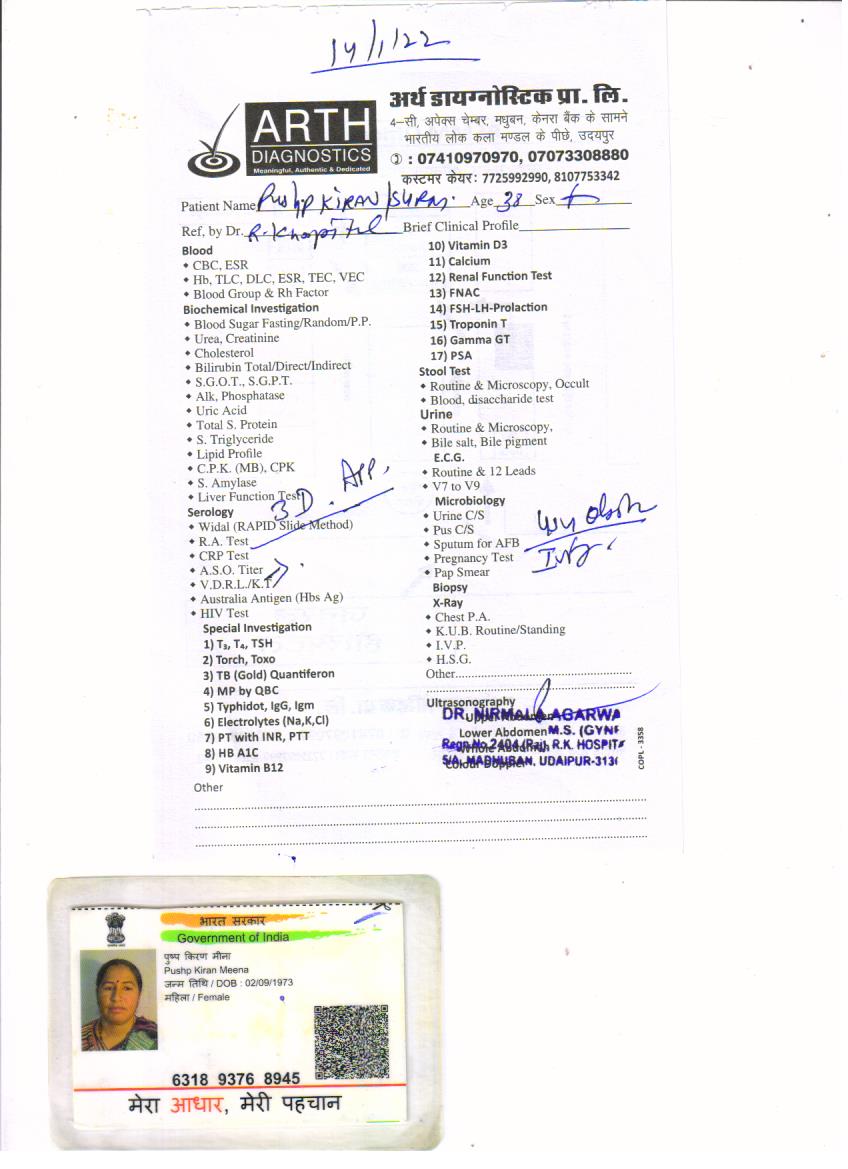 14/1/22
ARTH
DIAGNOSTICS
Meaningful, Authentic & Dedicated
अर्थ डायग्नोस्टिक प्रा. लि.
4–सी, अपेक्स चेम्बर, मधुबन, केनरा बैंक के सामने
भारतीय लोक कला मण्डल के पीछे, उदयपुर
: 07410970970, 07073308880
कस्टमर केयर: 7725992990, 8107753342
Patient Name Pushp KIRAN Age 38 Sex f
Ref, by Dr. Brief Clinical Profile
Blood
• CBC, ESR
• Hb, TLC, DLC, ESR, TEC, VEC
• Blood Group & Rh Factor
Biochemical Investigation
• Blood Sugar Fasting/Random/P.P.
• Urea, Creatinine
• Cholesterol
• Bilirubin Total/Direct/Indirect
• S.G.O.T., S.G.P.T.
• Alk, Phosphatase
• Uric Acid
• Total S. Protein
• S. Triglyceride
• Lipid Profile
• C.P.K. (MB), CPK
• S. Amylase
• Liver Function Test
3D
Serology
• Widal (RAPID Slide Method)
• R.A. Test
• CRP Test
• A.S.O. Titer
• V.D.R.L./K.T
• Australia Antigen (Hbs Ag)
• HIV Test
Special Investigation
1) T₃, T₄, TSH
2) Torch, Toxo
3) TB (Gold) Quantiferon
4) MP by QBC
5) Typhidot, IgG, Igm
6) Electrolytes (Na,K,Cl)
7) PT with INR, PTT
8) HB A1C
9) Vitamin B12
Other
10) Vitamin D3
11) Calcium
12) Renal Function Test
13) FNAC
14) FSH-LH-Prolaction
15) Troponin T
16) Gamma GT
17) PSA
Stool Test
• Routine & Microscopy, Occult
• Blood, disaccharide test
Urine
• Routine & Microscopy,
• Bile salt, Bile pigment
E.C.G.
• Routine & 12 Leads
• V7 to V9
Microbiology
• Urine C/S
• Pus C/S
• Sputum for AFB
• Pregnancy Test
• Pap Smear
Biopsy
X-Ray
• Chest P.A.
• K.U.B. Routine/Standing
• I.V.P.
• H.S.G.
Other
Ultrasonography
DR. NIRMALA AGARWA
Upper Abdomen
Lower Abdomen M.S. (GYN
Regn.No.2404 (Raj), R.K. HOSPIT
Whole Abdomen
5/A, MADHUBAN, UDAIPUR-313
Colour Doppler
COPL - 3358
भारत सरकार
Government of India
पुष्प किरण मीना
Pushp Kiran Meena
जन्म तिथि / DOB : 02/09/1973
महिला / Female
6318 9376 8945
मेरा आधार, मेरी पहचान